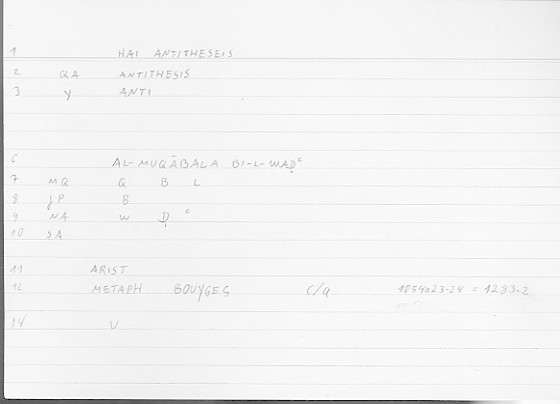 1 HAI ANTITHESEIS
2 QA ANTITHESIS
3 Y ANTI
6 AL-MUQĀBALA BI-L-WAḌʿ
7 MQ Q B L
8 JP B
9 NA W Ḍ ʿ
10 SA
11 ARIST
12 METAPH BOUYGES C/a 1054a23-24 = 1283.2
14 V